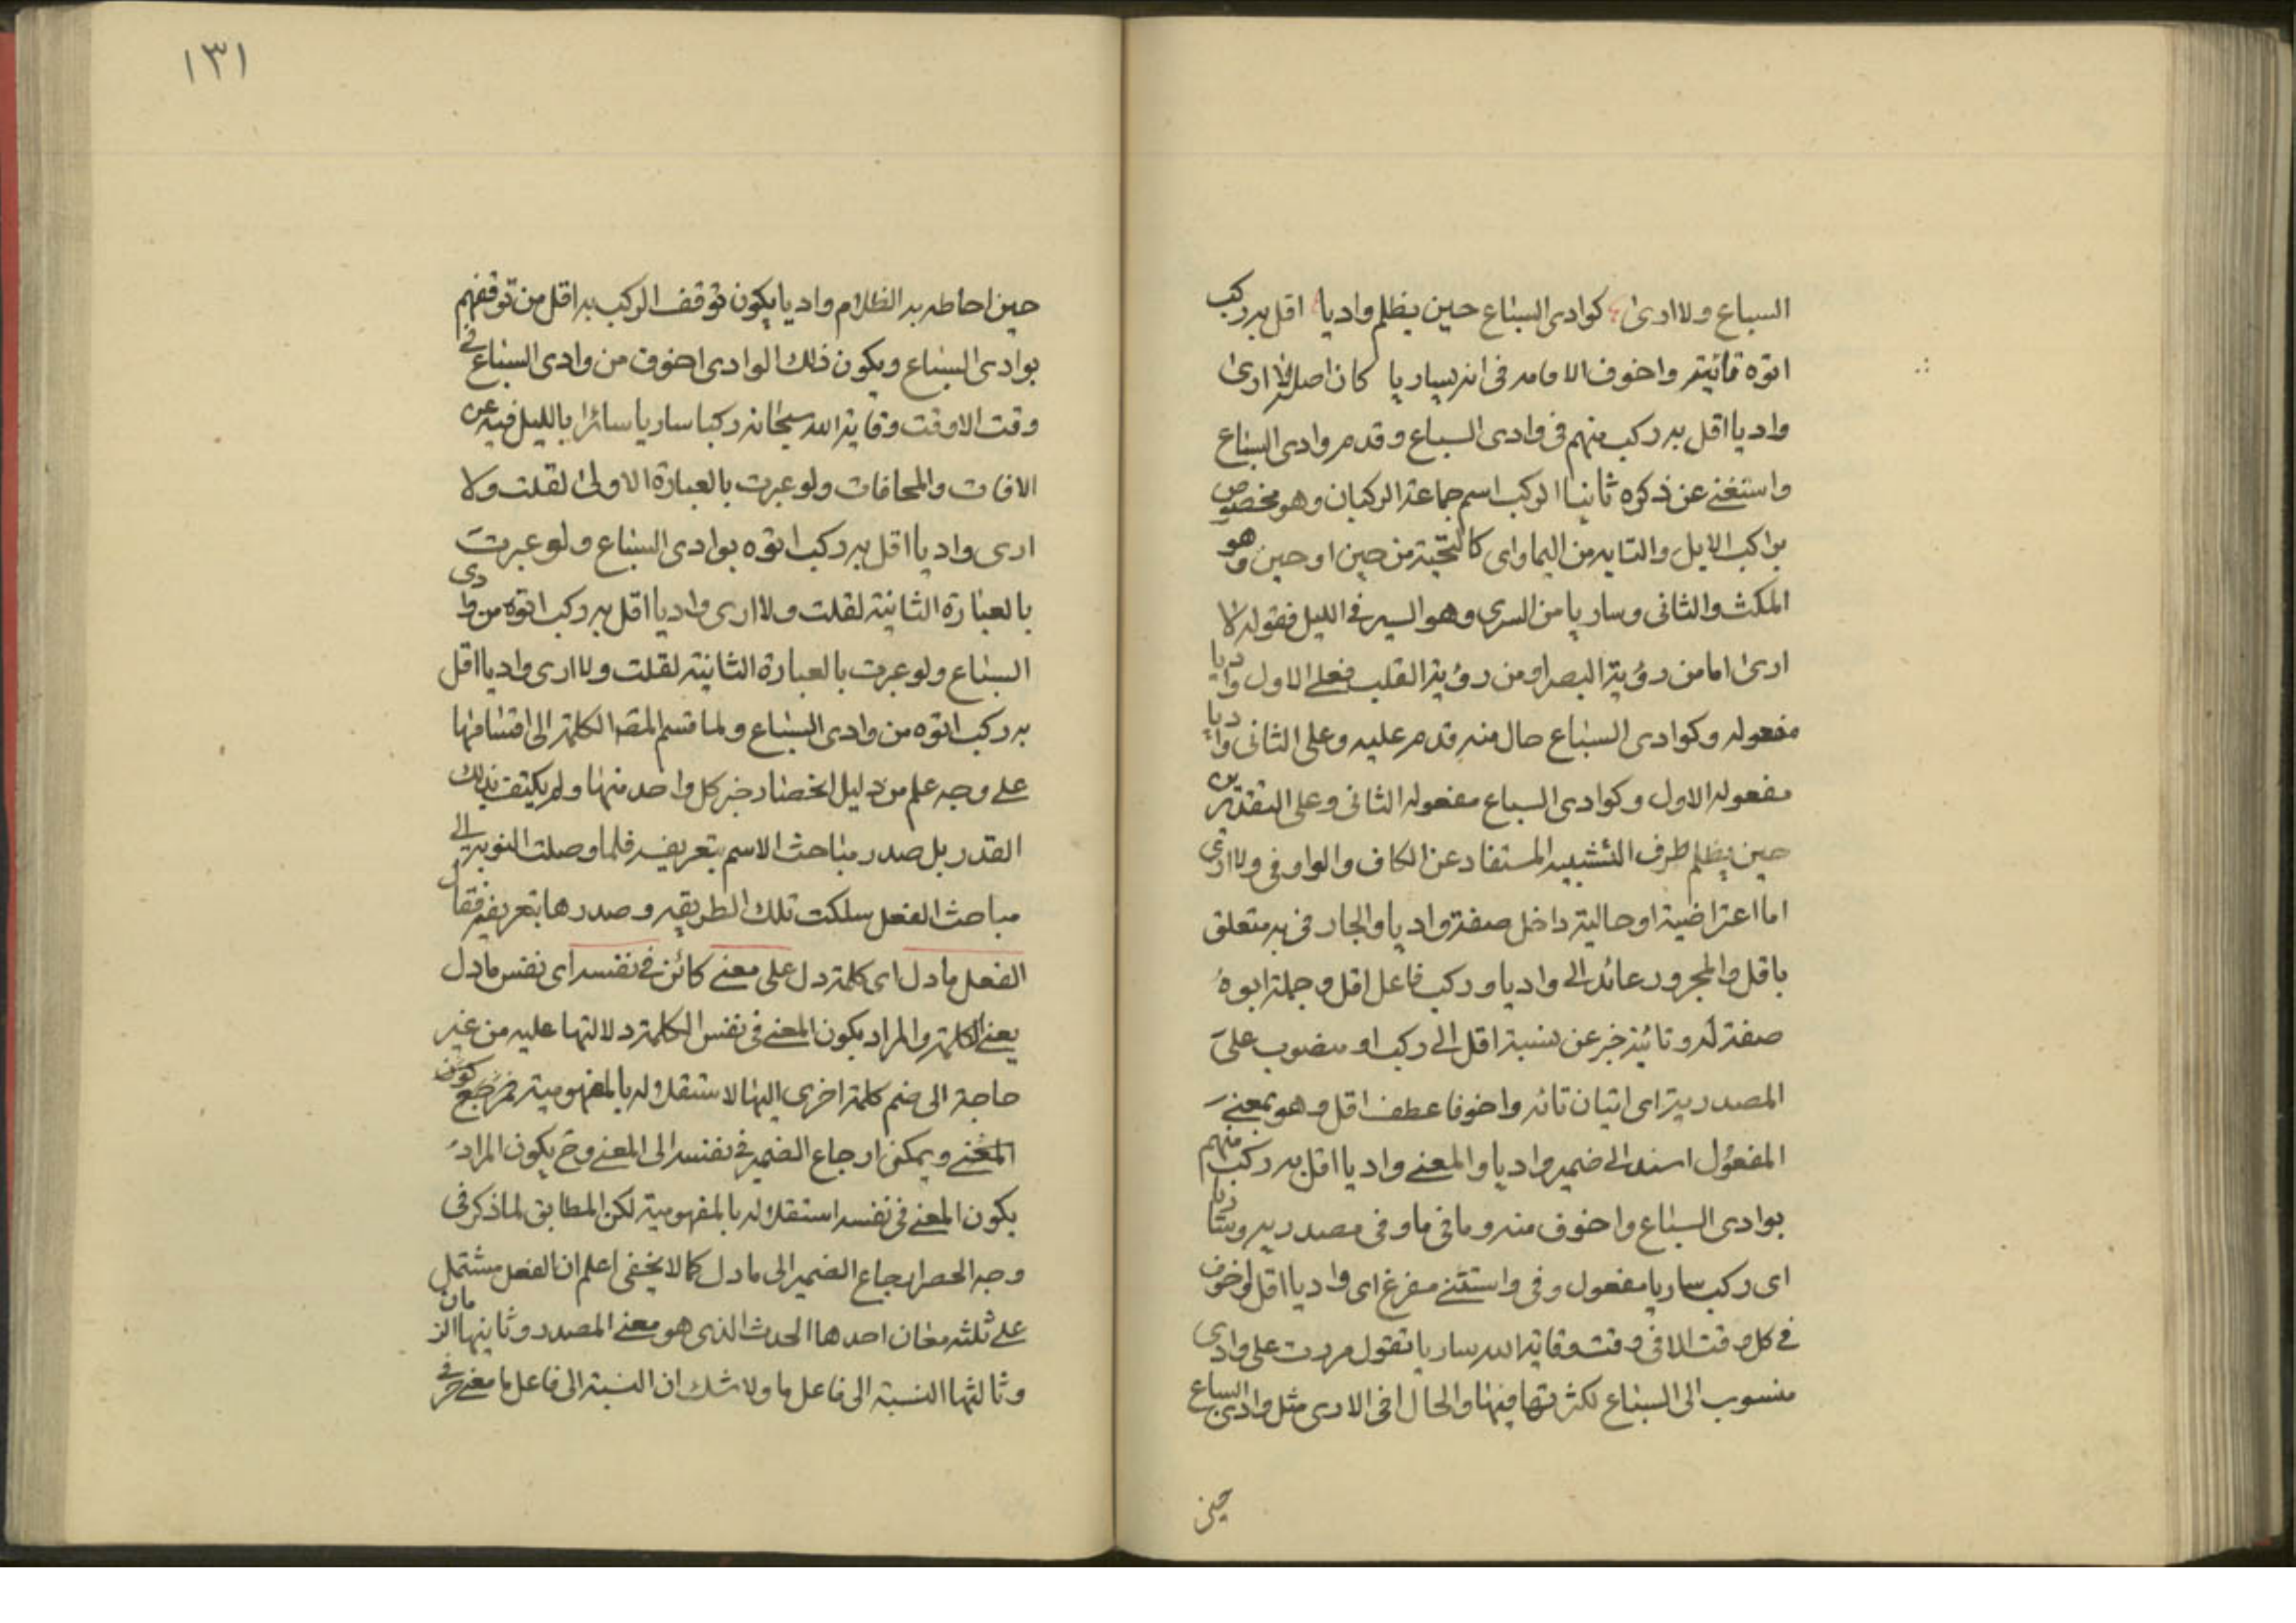 السباع ولا ارى كوادى السباع حين يظلم واديا اقل به ركب
اتوه تائية واخوف الا ما فى انه ساريا كان اصل لا ارى
واديا اقل به ركب منهم فى وادى السباع وقدم وادى السباع
واستغنى عن ذكره ثانيا الركب اسم جماعة الركبان وهو مخصوص
براكب الابل والتايه من اوحين وهو
المكث والثانى وساريا من السرى وهو السير فى الليل فقوله لا
ارى اما من رؤية البصر او من رؤية القلب فعلى الاول واديا
مفعوله وكوادى السباع حال منه قدم عليه وعلى الثانى واديا
مفعوله الاول وكوادى السباع مفعوله الثانى وعلى التقديرين
حين يظلم ظرف التشبيه المستفاد عن الكاف والواو فى ولا ارى
اما اعتراضية او حالية داخل صفة واديا والجار فى به متعلق
باقل والمجرور عائد الى واديا وركب فاعل اقل وجملة اتوه
صفة له وتائية خبر عن نسبة اقل الى ركب او منصوب على
المصدرية اى اتيان تائه واخوفا عطف اقل وهو بمعنى
المفعول اسند الى ضمير واديا والمعنى واديا اقل به ركب منهم
بوادى السباع واخوف منه وما فى ما وفى مصدريه وساريا
اى ركب ساريا مفعول وفى واستثنى مفرغ اى واديا اقل واخوف
فى كل وقت الا فى وقت وقاية الله ساريا تقول مررت على وادى
منسوب الى السباع لكثرتها فيها والحال انى لا ارى مثل وادى السباع
حين
١٣١
حين احاطه به الظلام واديا يكون توقف الركب به اقل من توقفهم
بوادى السباع ويكون ذلك الوادى اخوف من وادى السباع فى
وقت الا وقت وقاية الله سبحانه ركبا ساريا سائرا بالليل فيه عن
الافات والمخافات ولو عبرت بالعبارة الاولى لقلت ولا
ارى واديا اقل به ركب اتوه بوادى السباع ولو عبرت
بالعبارة الثانية لقلت ولا ارى واديا اقل به ركب اتوه من وادى
السباع ولو عبرت بالعبارة الثانية لقلت ولا ارى واديا اقل
به ركب اتوه من وادى السباع ولما قسم المصـ الكلمة الى اقسامها
على وجه علم من دليل انحصار خبر كل واحد منها ولم يكتف بذلك
القدر بل صدر مباحث الاسم بتعريفه فلما وصلت النوبة الى
مباحث الفعل سلكت تلك الطريقه وصدرها بتعريفه فقال
الفعل ما دل اى كلمة دل على معنى كائن فى نفسه اى نفس ما دل
يعنى الكلمة والمراد بكون المعنى فى نفس الكلمة دلالتها عليه من غير
حاجة الى ضم كلمة اخرى اليها لاستقلاله بالمفهومية كون
المعنى ويمكن ارجاع الضمير فى نفسه الى المعنى وح يكون المراد
بكون المعنى فى نفسه استقلاله بالمفهومية لكن المطابق لما ذكر فى
وجه الحصر ارجاع الضمير الى ما دل كما لا يخفى اعلم ان الفعل مشتمل
على ثلثه معان احدها الحدث الذى هو معنى المصدر وثانيها الزمان
وثالثها النسبة الى فاعل ما ولا شك ان النسبة الى فاعل ما معنى حرفى